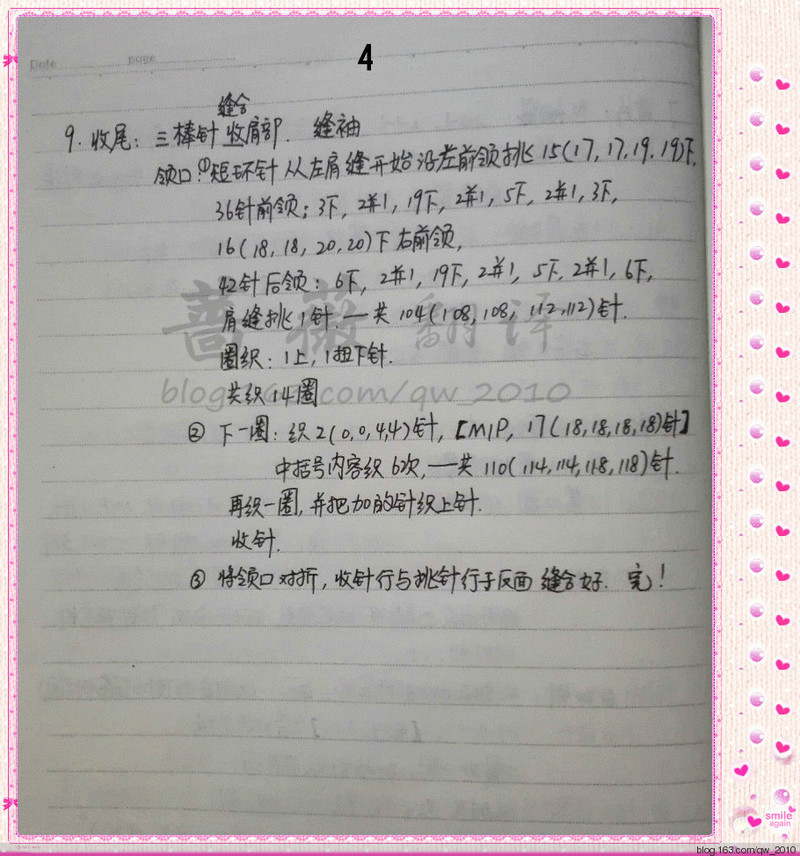 4
Date page
缝合
9. 收尾: 三棒针收肩部. 缝袖
领口:①短环针从左肩缝开始沿左前领挑15(17,17,19,19)下,
36针前领: 3下, 2并1, 19下, 2并1, 5下, 2并1, 3下,
16(18,18,20,20)下右前领,
42针后领: 6下, 2并1, 19下, 2并1, 5下, 2并1, 6下,
肩缝挑1针. 一共104(108,108,112,112)针.
蔷薇翻译
圈织: 1上, 1扭下针.
blog.163.com/qw_2010
共织14圈
② 下一圈: 织2(0,0,4,4)针, [M1P, 17(18,18,18,18)针]
中括号内容织6次, 一共110(114,114,118,118)针.
再织一圈, 并把加的针织上针.
收针.
③ 将领口对折, 收针行与挑针行于反面缝合好. 完!
smile
again
blog.163.com/qw_2010